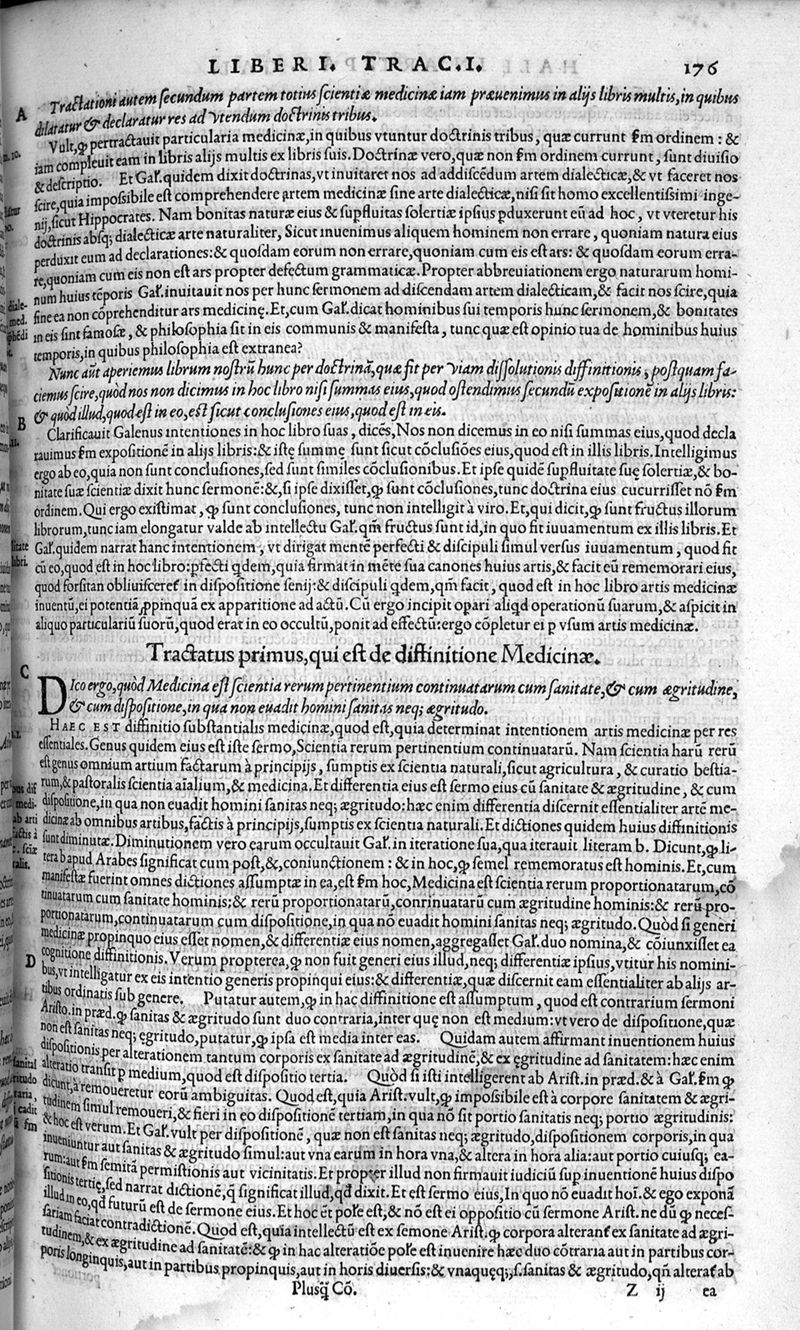 LIBERI. TRAC.I. 176
Tractationi autem secundum partem totius scientiæ medicinæ iam præuenimus in alijs libris multis, in quibus
A
dilatatur & declaratur res ad vtendum doctrinis tribus.
Vult, ꝙ pertractauit particularia medicinæ, in quibus vtuntur doctrinis tribus, quæ currunt ſm ordinem: &
iam compleuit eam in libris alijs multis ex libris suis. Doctrinæ vero, quæ non ſm ordinem currunt, sunt diuisio
& descriptio. Et Gal. quidem dixit doctrinas, vt inuitaret nos ad addiscédum artem dialecticæ, & vt faceret nos
scire, quia impossibile est comprehendere artem medicinæ sine arte dialecticæ, nisi sit homo excellentissimi inge-
nij, sicut Hippocrates. Nam bonitas naturæ eius & supfluitas solertiæ ipsius ꝓduxerunt eū ad hoc, vt vteretur his
doctrinis absq; dialecticæ arte naturaliter, Sicut inuenimus aliquem hominem non errare, quoniam natura eius
perduxit eum ad declarationes: & quosdam eorum non errare, quoniam cum eis est ars: & quosdam eorum erra-
re, quoniam cum eis non est ars propter defectum grammaticæ. Propter abbreuiationem ergo naturarum homi-
num huius tēporis Gal. inuitauit nos per hunc sermonem ad discendam artem dialecticam, & facit nos scire, quia
sine ea non cōprehenditur ars medicinę. Et, cum Gal. dicat hominibus sui temporis hunc sermonem, & bonitates
in eis sint famosæ, & philosophia sit in eis communis & manifesta, tunc quæ est opinio tua de hominibus huius
temporis, in quibus philosophia est extranea?
Nunc aūt aperiemus librum nostrū hunc per doctrinā, quæ fit per viam dissolutionis diffinitionis, postquam fa-
ciemus scire, quòd nos non dicimus in hoc libro nisi summas eius, quod ostendimus secundū expositionē in alijs libris:
& quòd illud, quod est in eo, est sicut conclusiones eius, quod est in eis.
B
Clarificauit Galenus intentiones in hoc libro suas, dicēs, Nos non dicemus in eo nisi summas eius, quod decla
rauimus ſm expositionē in alijs libris: & istę summę sunt sicut cōclusiōes eius, quod est in illis libris. Intelligimus
ergo ab eo, quia non sunt conclusiones, sed sunt similes cōclusionibus. Et ipse quidē supfluitate suę solertiæ, & bo-
nitate suæ scientiæ dixit hunc sermonē: &, si ipse dixisset, ꝙ sunt cōclusiones, tunc doctrina eius cucurrisset nō ſm
ordinem. Qui ergo existimat, ꝙ sunt conclusiones, tunc non intelligit à viro. Et, qui dicit, ꝙ sunt fructus illorum
librorum, tunc iam elongatur valde ab intellectu Gal. qm̄ fructus sunt id, in quo fit iuuamentum ex illis libris. Et
Gal. quidem narrat hanc intentionem, vt dirigat mentē perfecti & discipuli simul versus iuuamentum, quod fit
cū eo, quod est in hoc libro: pfecti qdem, quia firmat in mēte sua canones huius artis, & facit eū rememorari eius,
quod forsitan obliuisceret in dispositione senij: & discipuli qdem, qm̄ facit, quod est in hoc libro artis medicinæ
inuentū, ei potentiā ꝓpinquā ex apparitione ad actū. Cū ergo incipit opari aliqd operationū suarum, & aspicit in
aliquo particulariū suorū, quod erat in eo occultū, ponit ad effectū: ergo cōpletur ei p vsum artis medicinæ.
Tractatus primus, qui est de diffinitione Medicinæ.
C
DIco ergo, quòd Medicina est scientia rerum pertinentium continuatarum cum sanitate, & cum ægritudine,
& cum dispositione, in qua non euadit homini sanitas neq; ægritudo.
HAEC EST diffinitio substantialis medicinæ, quod est, quia determinat intentionem artis medicinæ per res
essentiales. Genus quidem eius est iste sermo, Scientia rerum pertinentium continuatarū. Nam scientia harū rerū
est genus omnium artium factarum à principijs, sumptis ex scientia naturali, sicut agricultura, & curatio bestia-
rum, & pastoralis scientia aīalium, & medicina. Et differentia eius est sermo eius cū sanitate & ægritudine, & cum
dispositione, in qua non euadit homini sanitas neq; ægritudo: hæc enim differentia discernit essentialiter artē me-
dicinæ ab omnibus artibus, factis à principijs, sumptis ex scientia naturali. Et dictiones quidem huius diffinitionis
sunt diminutæ. Diminutionem vero earum occultauit Gal. in iteratione sua, qua iterauit literam b. Dicunt, ꝙ li-
tera b apud Arabes significat cum post, & coniunctionem: & in hoc, ꝙ semel rememoratus est hominis. Et, cum
manifestæ fuerint omnes dictiones assumptæ in ea, est ſm hoc, Medicina est scientia rerum proportionatarum, cō
tinuatarum cum sanitate hominis: & rerū proportionatarū, conrinuatarū cum ægritudine hominis: & rerū pro-
portionatarum, continuatarum cum dispositione, in qua nō euadit homini sanitas neq; ægritudo. Quòd si generi
medicinæ propinquo eius esset nomen, & differentiæ eius nomen, aggregasset Gal. duo nomina, & cōiunxisset ea
cognitione diffinitionis. Verum propterea, ꝙ non fuit generi eius illud, neq; differentiæ ipsius, vtitur his nomini-
D
bus, vt intelligatur ex eis intentio generis propinqui eius: & differentiæ, quæ discernit eam essentialiter ab alijs ar-
tibus ordinatis sub genere. Putatur autem, ꝙ in hac diffinitione est assumptum, quod est contrarium sermoni
Aristo. in præd. ꝙ sanitas & ægritudo sunt duo contraria, inter quę non est medium: vt vero de dispositione, quæ
non est sanitas neq; ęgritudo, putatur, ꝙ ipsa est media inter eas. Quidam autem affirmant inuentionem huius
dispositionis per alterationem tantum corporis ex sanitate ad ægritudinē, & ex ęgritudine ad sanitatem: hæc enim
alteratio transit p medium, quod est dispositio tertia. Quòd si isti intelligerent ab Arist. in præd. & à Gal. ſm ꝙ
dicunt, à remoueretur eorū ambiguitas. Quod est, quia Arist. vult, ꝙ impossibile est à corpore sanitatem & ægri-
tudinem simul remoueri, & fieri in eo dispositionē tertiam, in qua nō sit portio sanitatis neq; portio ægritudinis:
& hoc est verum. Et Gal. vult per dispositionē, quæ non est sanitas neq; ægritudo, dispositionem corporis, in qua
inueniuntur aut sanitas & ægritudo simul: aut vna earum in hora vna, & altera in hora alia: aut portio cuiusq; ea-
rum: aut ſm semitā permistionis aut vicinitatis. Et propter illud non firmauit iudiciū sup inuentionē huius dispo
sitionis tertię, sed narrat dictionē, q̄ significat illud, qd dixit. Et est sermo eius, In quo nō euadit hoī. & ego exponā
illud in eo, qd futurū est de sermone eius. Et hoc ēt poſe est, & nō est ei oppositio cū sermone Arist. ne dū ꝙ neces-
sariam faciat contradictionē. Quod est, quia intellectū est ex semone Arist. ꝙ corpora alterant ex sanitate ad ægri-
tudinem, & ex ægritudine ad sanitatē: & ꝙ in hac alteratiōe poſe est inuenire hæc duo cōtraria aut in partibus cor-
poris longinquis, aut in partibus propinquis, aut in horis diuersis: & vnaquęq;, s. sanitas & ægritudo, qn̄ alterat ab
Plusq̄ Cō. Z ij ea